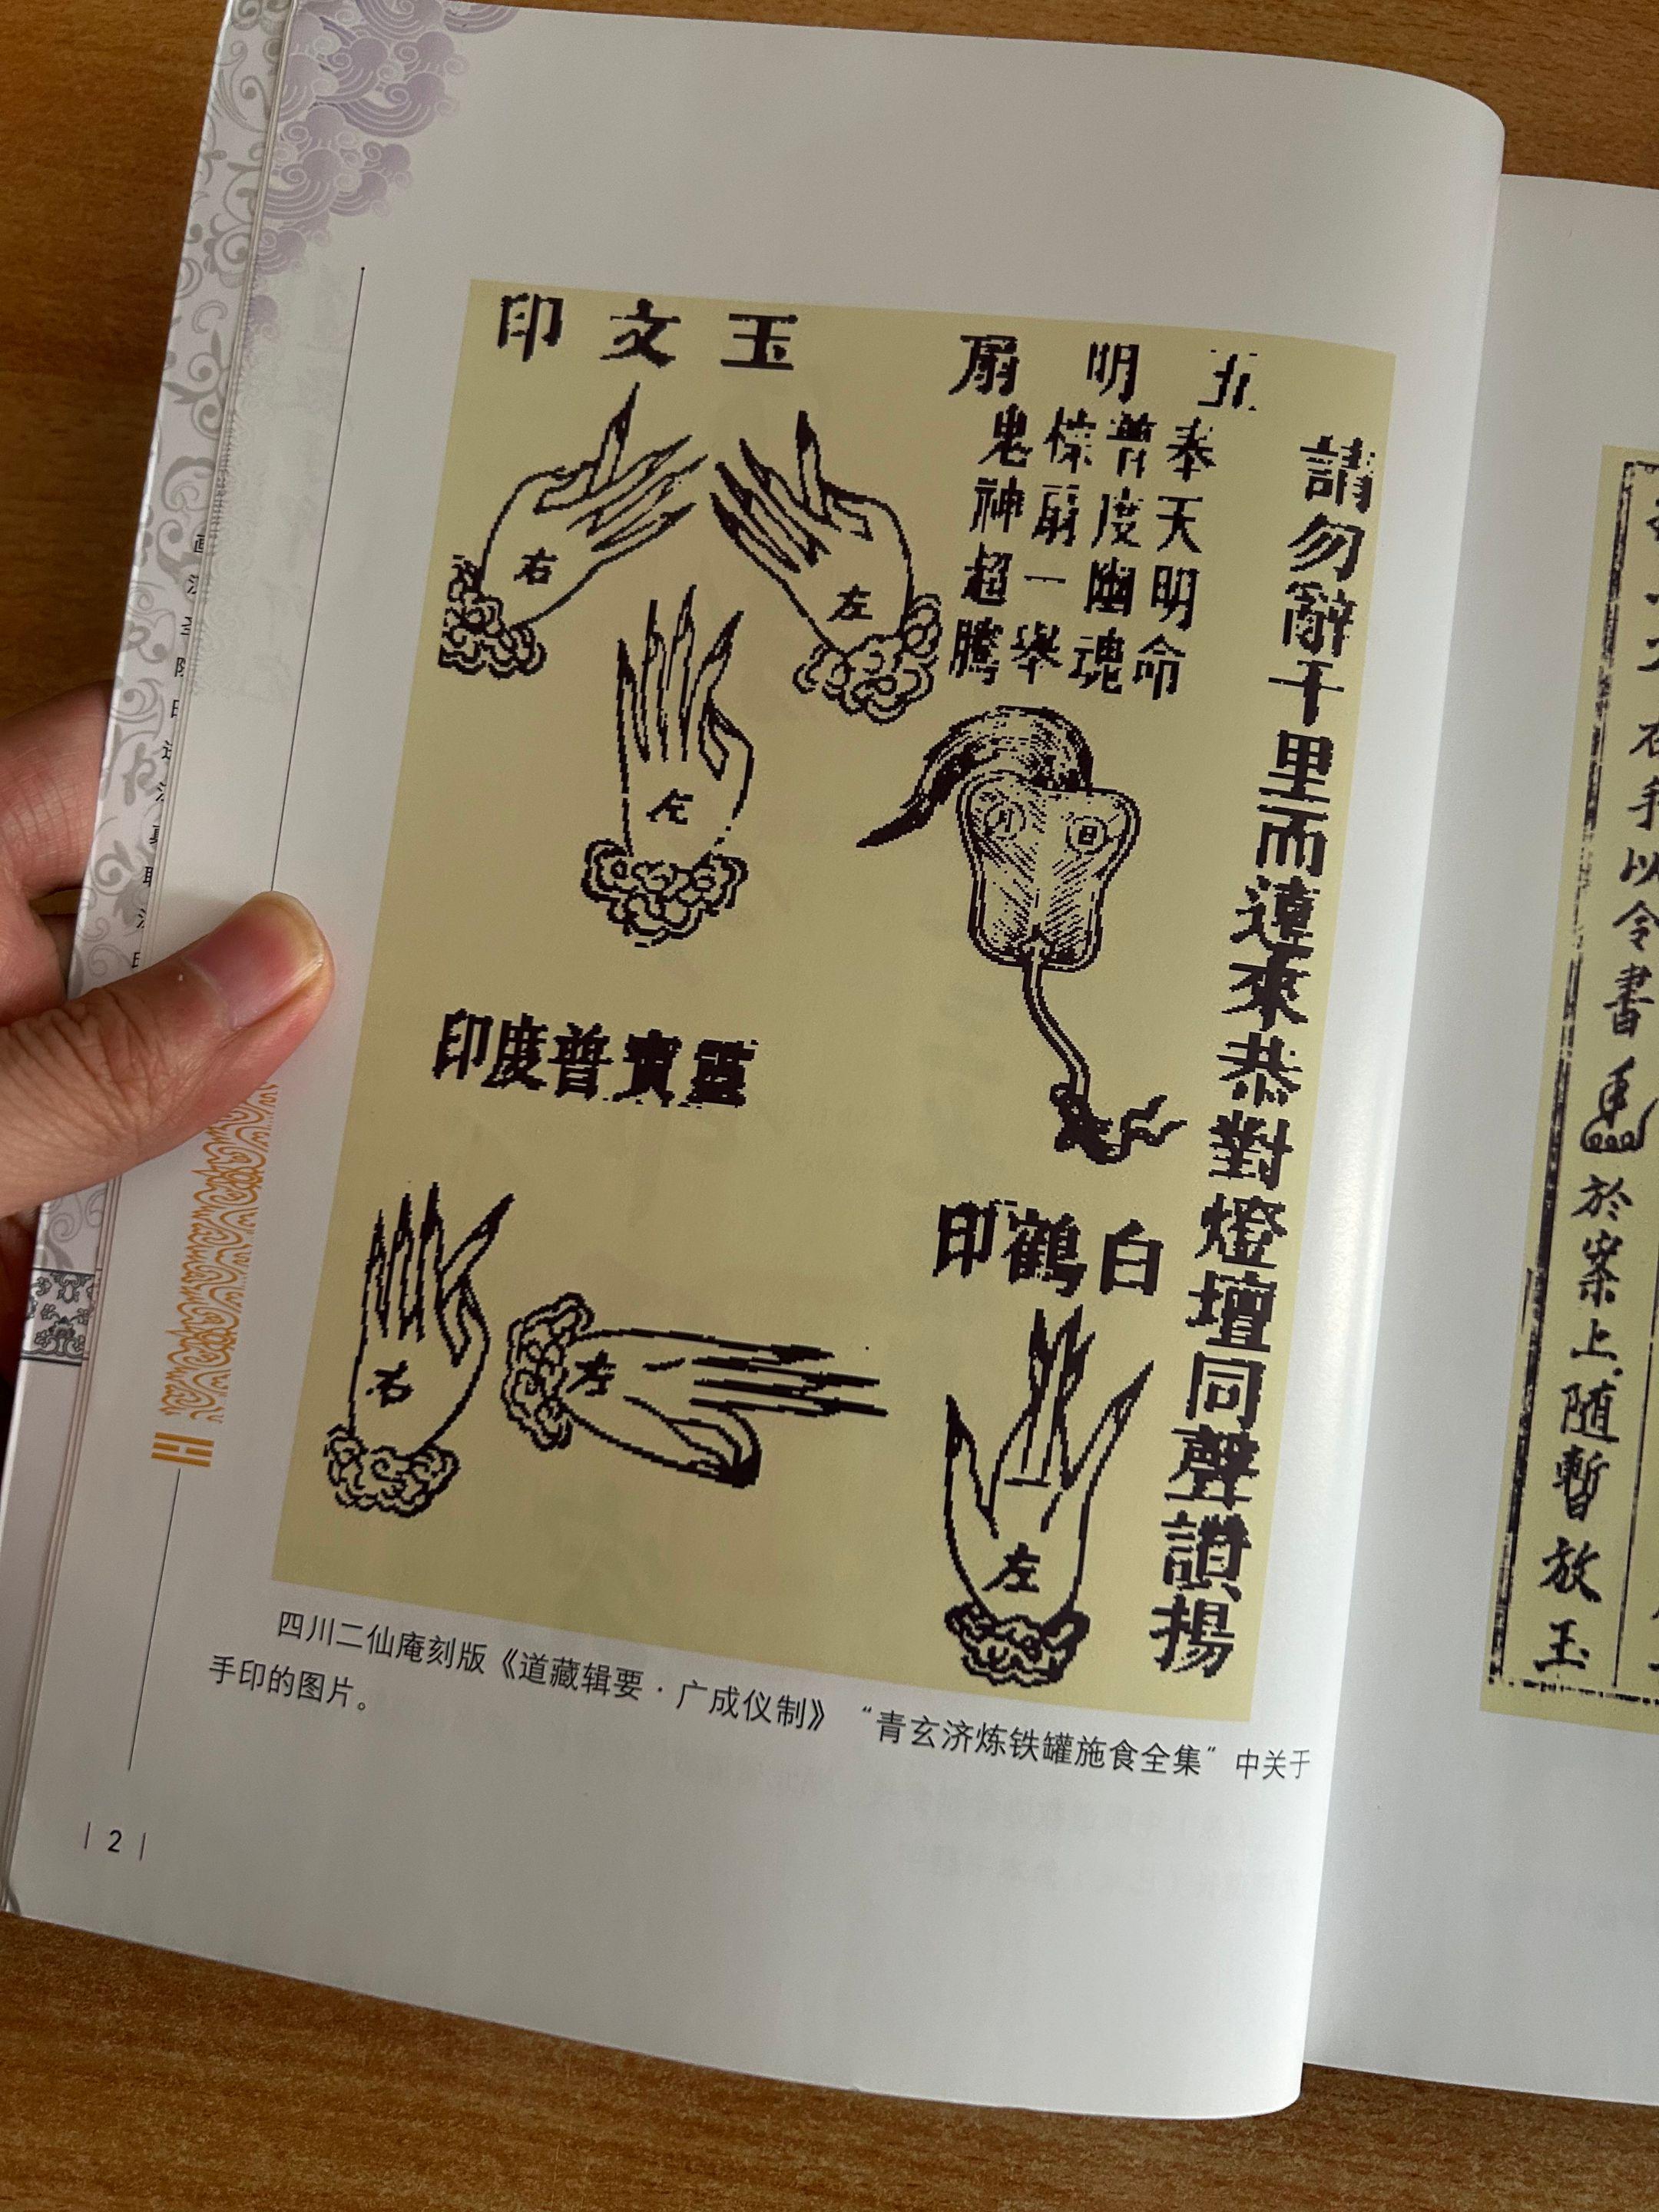 請勿辭千里而遠來恭對燈壇同聲讃揚
五明扇
奉天明命
普度幽魂
惊扇一舉
鬼神超騰
月
日
白鶴印
左
玉文印
右
左
左
靈寶普度印
右
左
四川二仙庵刻版《道藏辑要·广成仪制》“青玄济炼铁罐施食全集”中关于
手印的图片。
| 2 |
右手以令書
於案上随暫放玉